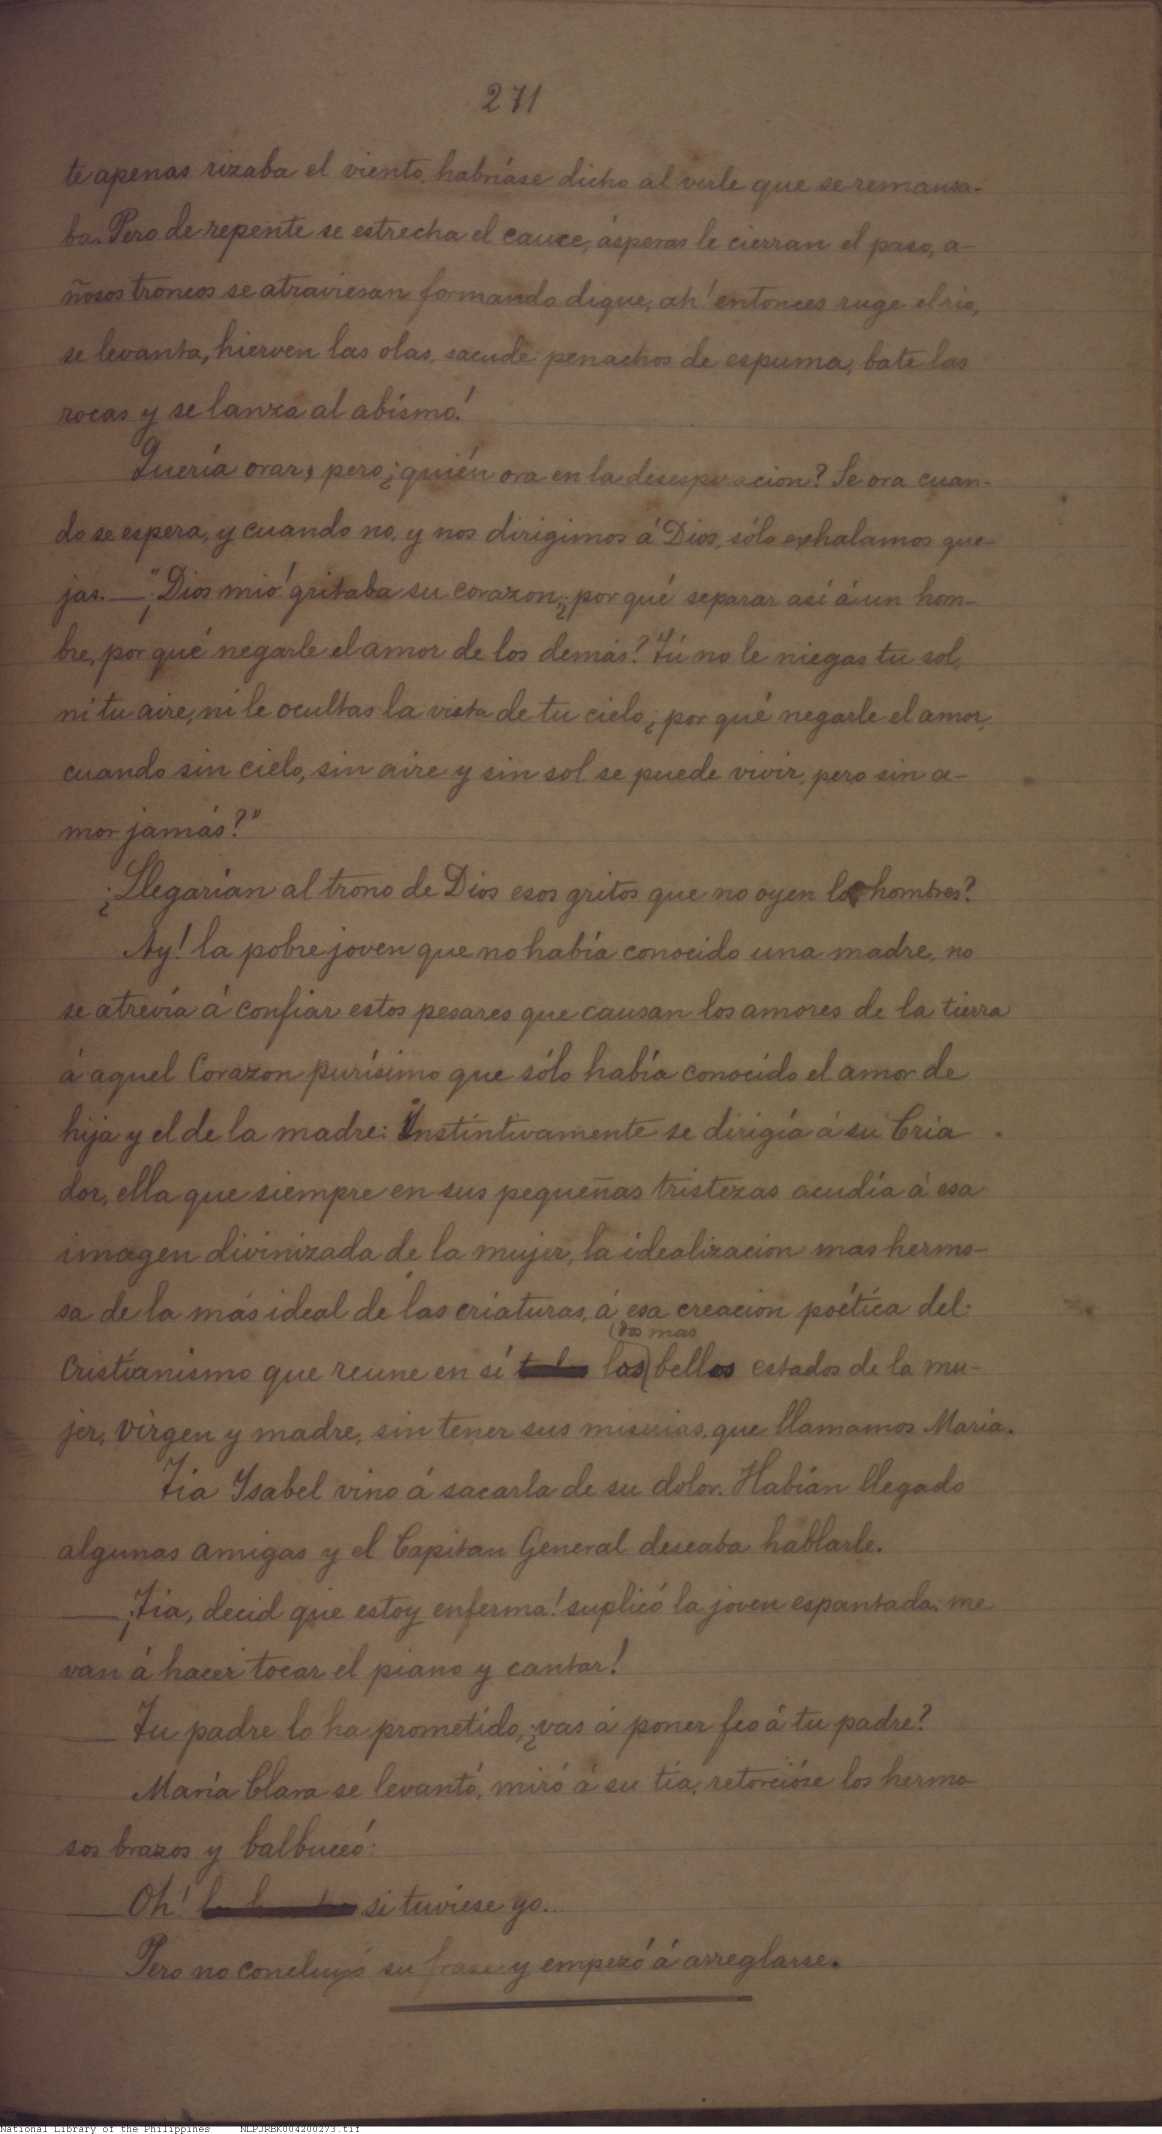 271
te apenas rizaba el viento, habríase dicho al verle que se remansa-
ba. Pero de repente se estrecha el cauce, ásperas le cierran el paso, a-
ñosos troncos se atraviesan formando dique, ah! entonces ruge el río,
se levanta, hierven las olas, sacude penachos de espuma, bate las
rocas y se lanza al abismo!
Quería orar, pero ¿quién ora en la desesperacion? Se ora cuan-
do se espera, y cuando no, y nos dirigimos á Dios, sólo exhalamos que-
jas. —"¡Dios mio! gritaba su corazon, ¿por qué separar así á un hom-
bre, por qué negarle el amor de los demás? Tú no le niegas tu sol,
ni tu aire, ni le ocultas la vista de tu cielo, ¿por qué negarle el amor,
cuando sin cielo, sin aire y sin sol se puede vivir, pero sin a-
mor jamás?"
¿Llegarían al trono de Dios esos gritos que no oyen los hombres?
Ay! la pobre joven que no había conocido una madre, no
se atrevía á confiar estos pesares que causan los amores de la tierra
á aquel Corazon purísimo que sólo había conocido el amor de
hija y el de la madre: instintivamente se dirigía á su Cria
dor, ella que siempre en sus pequeñas tristezas acudía á esa
imagen divinizada de la mujer, la idealizacion mas hermo-
sa de la más ideal de las criaturas, á esa creacion poética del
dos mas
Cristianismo que reune en sí los bellos estados de la mu-
jer, vírgen y madre, sin tener sus miserias, que llamamos María.
Tia Ysabel vino á sacarla de su dolor. Habían llegado
algunas amigas y el Capitan General deseaba hablarle.
—¡Tia, decid que estoy enferma! suplicó la joven espantada; me
van á hacer tocar el piano y cantar!
— Tu padre lo ha prometido, ¿vas á poner feo á tu padre?
María Clara se levantó, miró á su tía, retorcióse los hermo
sos brazos y balbuceó:
— Oh! si tuviese yo...
Pero no concluyó su frase y empezó á arreglarse.
National Library of the Philippines NLPJRBK004200273.tif